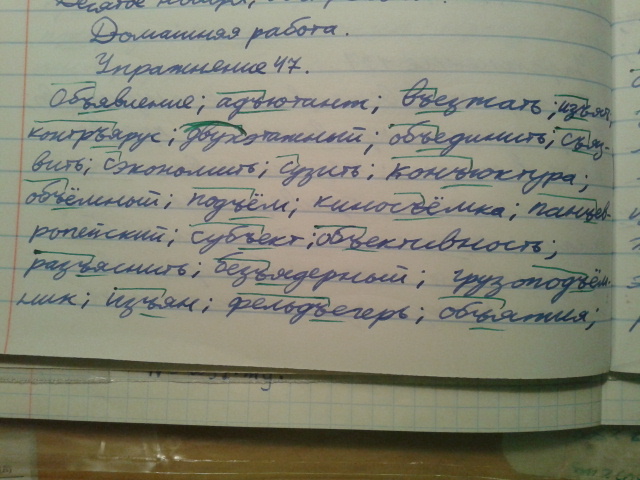 Домашняя работа.
Упражнение 47.
Объявление; адъютант; въезжать; изъять,
контръярус; двухэтажный; объединить; съяз-
вить; сэкономить; сузить; конъюктура;
объёмный; подъём; киносъёмка; панъев-
ропейский; субъект; объективность;
разъяснить; безъядерный; грузоподъём-
ник; изъян; фельдъегерь; объятия;